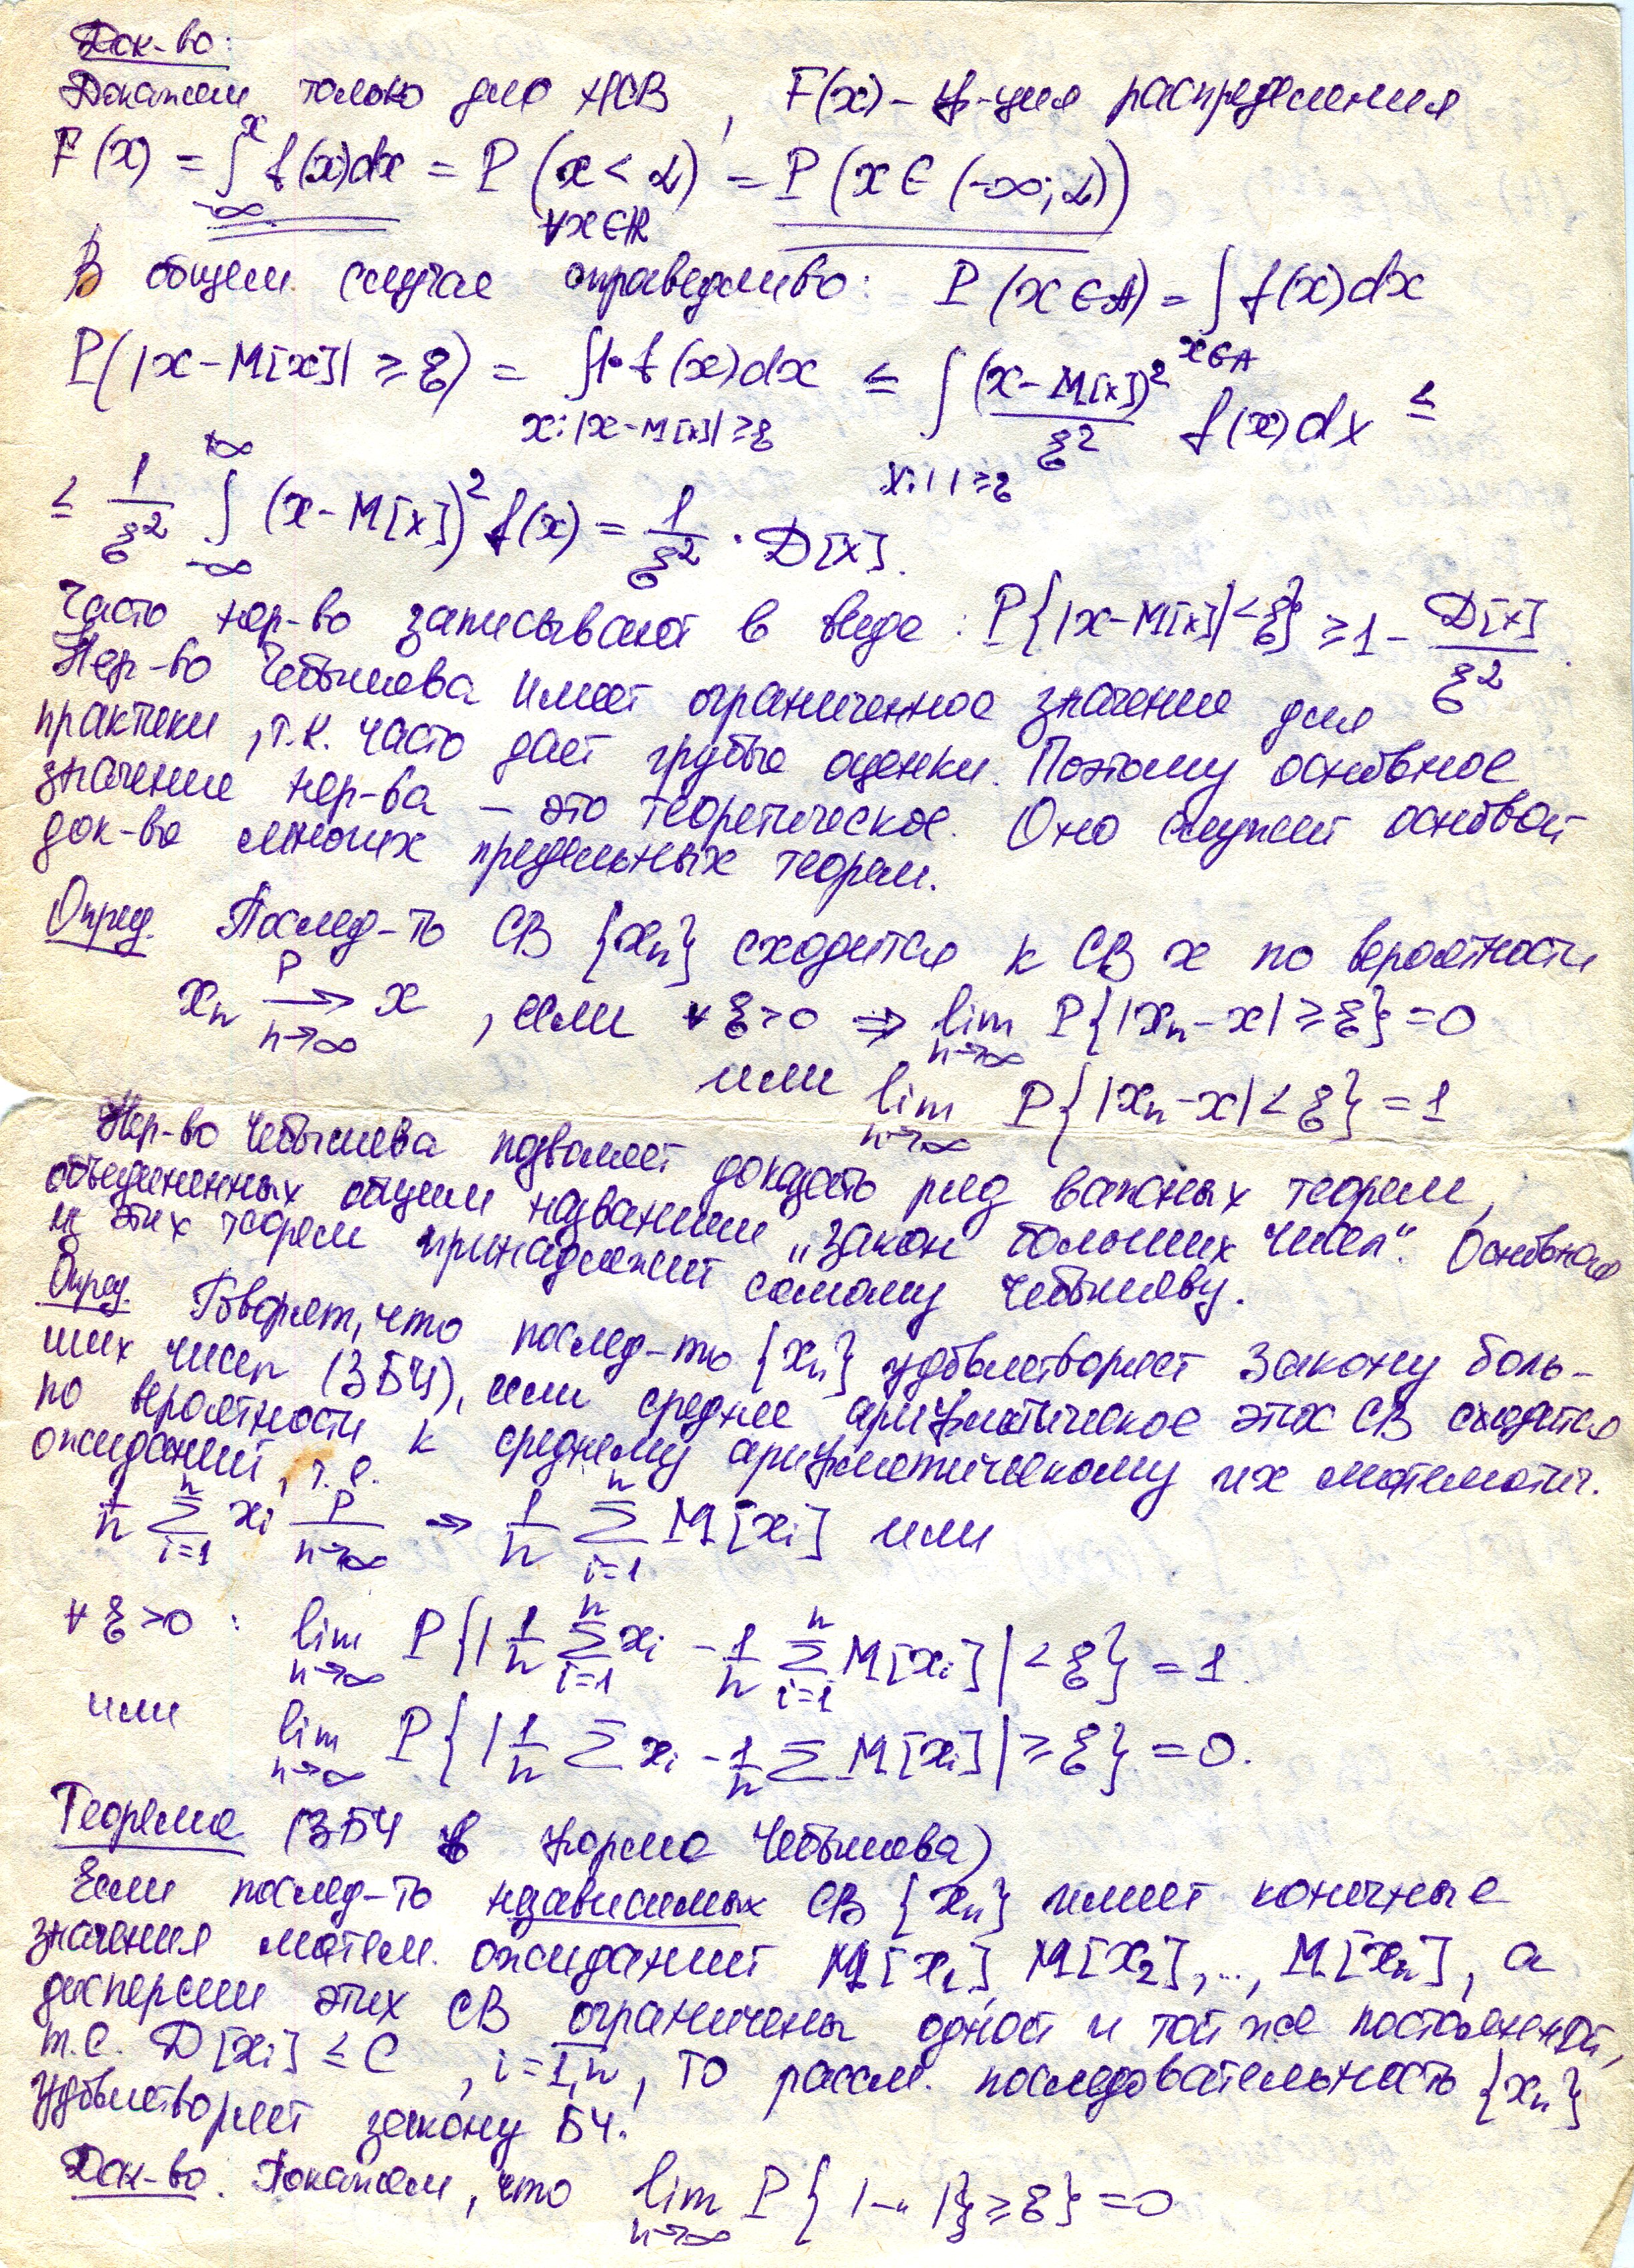 Док-во:
Докажем только для НСВ, F(x) – ф-ция распределения
F(x) = ∫_{-∞}^{x} f(x)dx = P(x < α) = P(x ∈ (-∞; α))
∀x∈ℝ
В общем случае справедливо: P(x ∈ A) = ∫_{x∈A} f(x)dx
P(|x - M[x]| ≥ ξ) = ∫_{x:|x-M[x]|≥ξ} 1·f(x)dx ≤ ∫_{x:| |≥ξ} (x-M[x])²/ξ² f(x)dx ≤
≤ 1/ξ² ∫_{-∞}^{+∞} (x-M[x])² f(x) = 1/ξ² · D[x].
Часто нер-во записывают в виде: P{|x-M[x]|<ξ} ≥ 1 - D[x]/ξ².
Нер-во Чебышева имеет ограниченное значение для
практики, т.к. часто дает грубые оценки. Поэтому основное
значение нер-ва – это теоретическое. Оно служит основой
док-ва многих предельных теорем.
Опред. Послед-ть СВ {xₙ} сходится к СВ x по вероятности
xₙ →^{P}_{n→∞} x, если ∀ξ>0 ⇒ lim_{n→∞} P{|xₙ-x| ≥ ξ} = 0
или lim_{n→∞} P{|xₙ-x| < ξ} = 1
Нер-во Чебышева позволяет доказать ряд важных теорем,
объединенных общим названием „Закон больших чисел“. Основная
из этих теорем принадлежит самому Чебышеву.
Опред. Говорят, что послед-ть {xₙ} удовлетворяет Закону боль-
ших чисел (ЗБЧ), если среднее арифметическое этих СВ сходится
по вероятности к среднему арифметическому их математич.
ожиданий, т.е.
1/n ∑_{i=1}^{n} xᵢ P/n→∞ → 1/n ∑_{i=1}^{n} M[xᵢ] или
∀ξ>0 : lim_{n→∞} P{|1/n ∑_{i=1}^{n} xᵢ - 1/n ∑_{i=1}^{n} M[xᵢ]| < ξ} = 1.
или lim_{n→∞} P{|1/n ∑ xᵢ - 1/n ∑ M[xᵢ]| ≥ ξ} = 0.
Теорема (ЗБЧ в форме Чебышева)
Если послед-ть независимых СВ {xₙ} имеет конечные
значения матем. ожиданий M[x₁], M[x₂],..., M[xₙ], а
дисперсии этих СВ ограничены одной и той же постоянной,
т.е. D[xᵢ] ≤ C, i=1,n, то рассм. последовательность {xₙ}
удовлетворяет закону БЧ.
Док-во. Покажем, что lim_{n→∞} P{ |–„ |} ≥ ξ} = 0